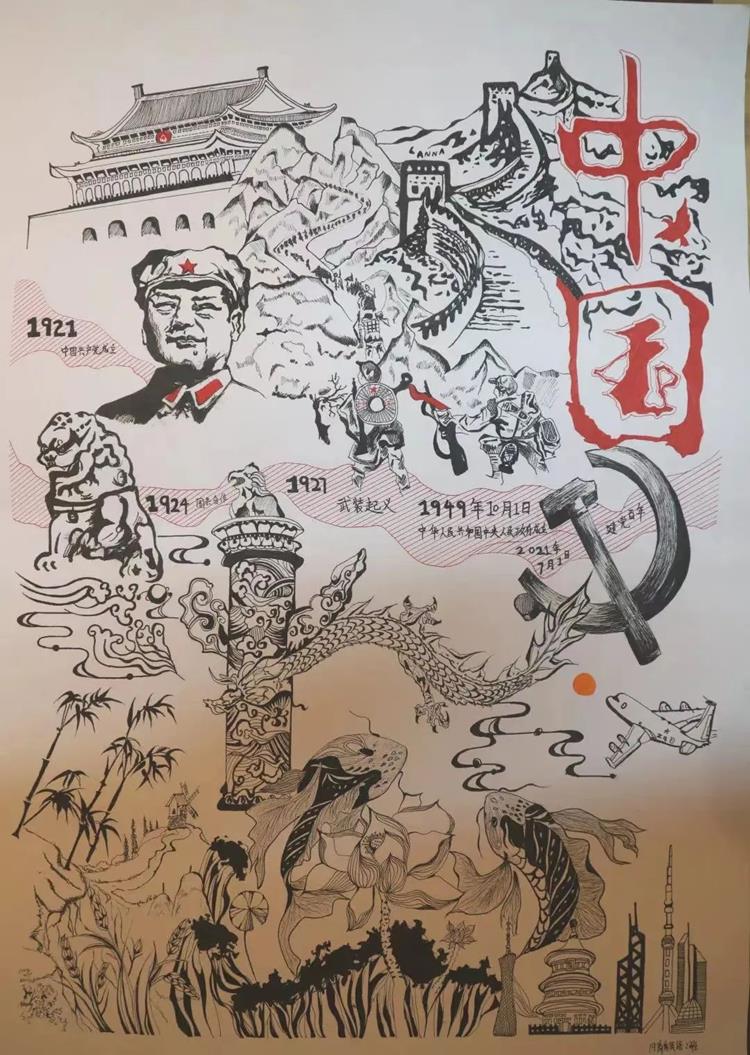 中国
LANNA
1921
中国共产党成立
1924 国共合作
1927
武装起义
1949年10月1日
中华人民共和国中央人民政府成立
2021年
7月1日
建党百年